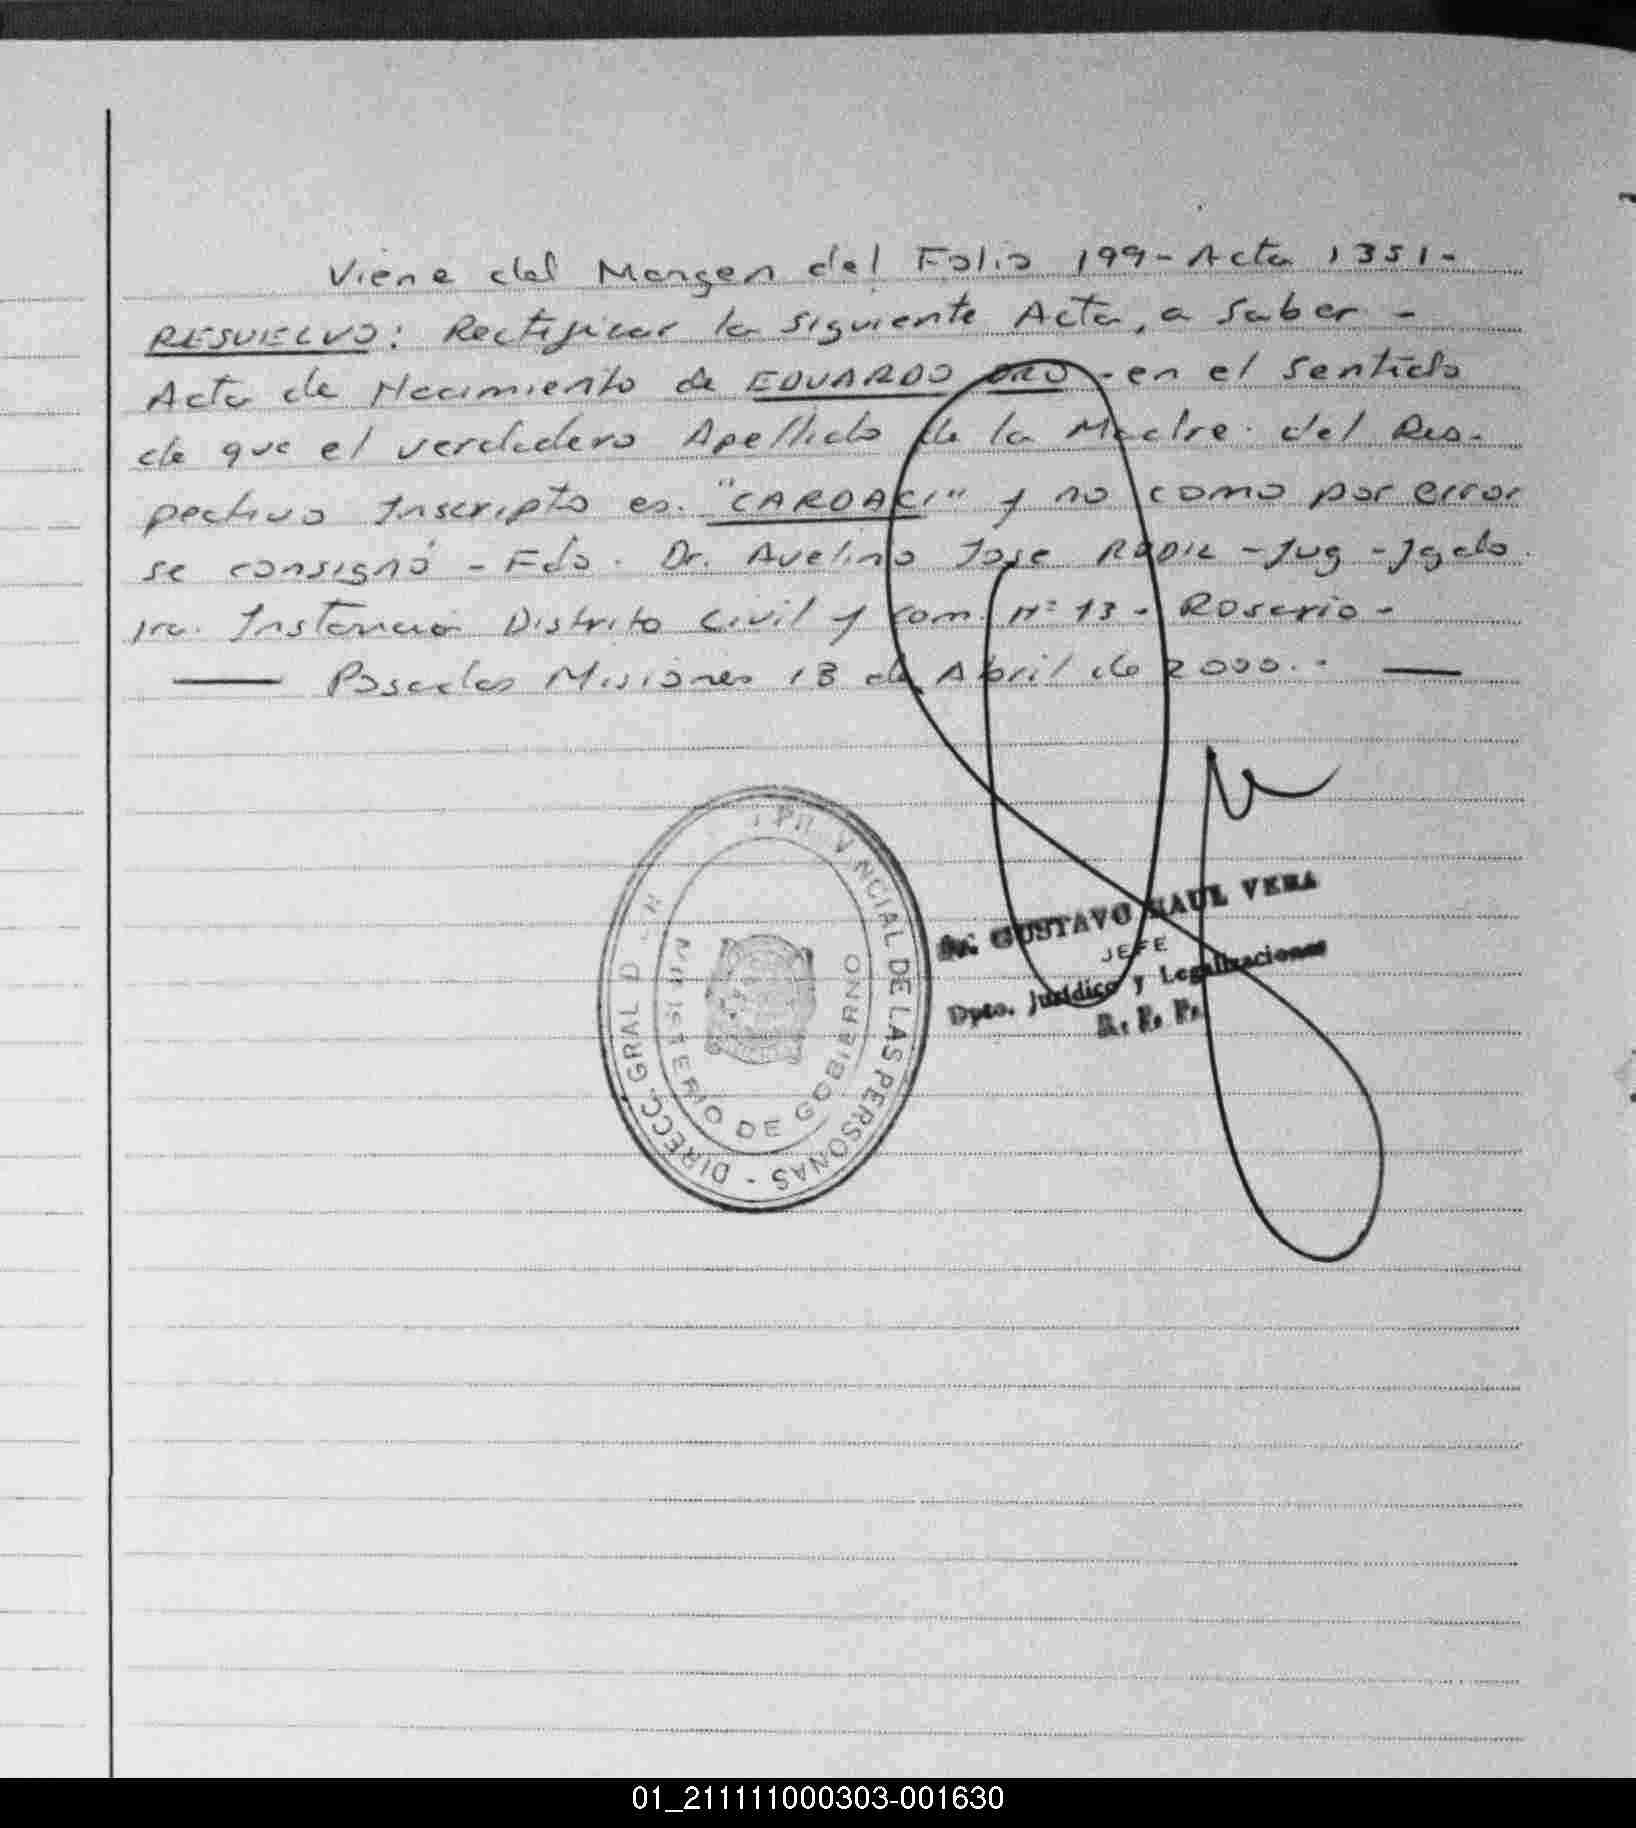 Viene del Margen del Folio 199 - Acta 1351 -
RESUELVO: Rectificar la siguiente Acta, a saber -
Acta de Nacimiento de EDUARDO ORO - en el sentido
de que el verdadero Apellido de la Madre del Res-
pectivo Inscripto es "CARDACI" y no como por error
se consignó - Fdo. Dr. Avelino Jose RODIL - Jug - Jgdo.
1ra. Instancia Distrito Civil y Com. Nº 13 - Rosario -
Posadas Misiones 18 de Abril de 2000. -
PROVINCIAL DE LAS PERSONAS - DIRECC. GRAL D
MINISTERIO DE GOBIERNO
Dr. GUSTAVO RAUL VERA
JEFE
Dpto. Jurídico y Legalizaciones
R. P. P.
01_211111000303-001630